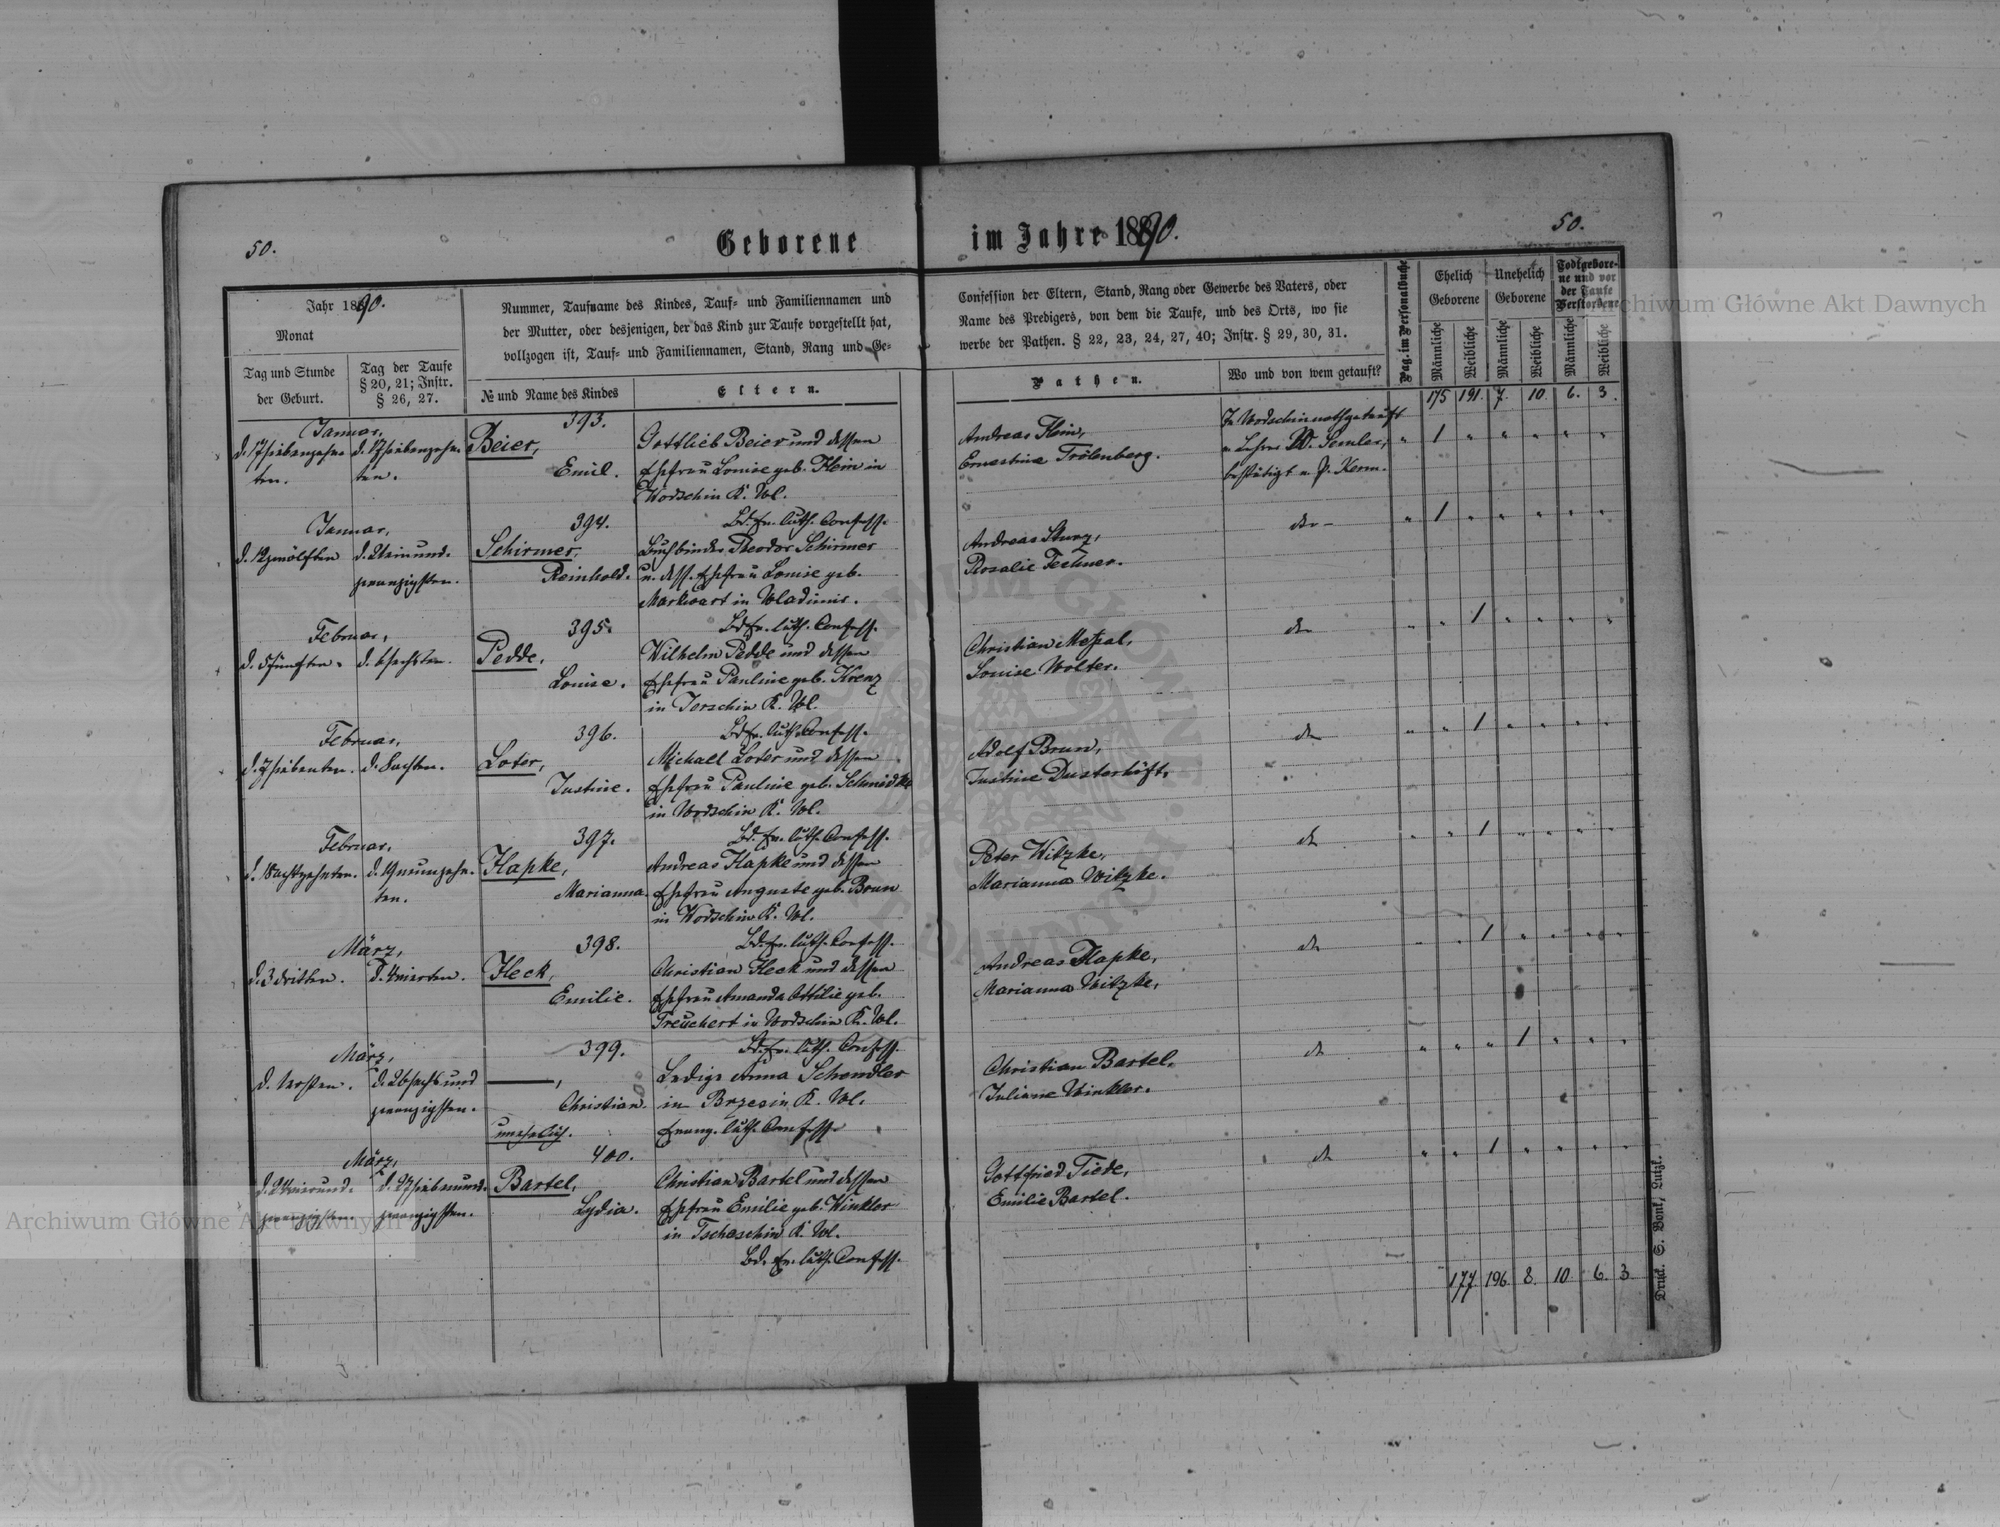 50.
Geborene
im Jahre 1890.
50.
Jahr 1890.
Monat
Tag und Stunde
der Geburt.
Tag der Taufe
§ 20, 21; Instr.
§ 26, 27.
Nummer, Taufname des Kindes, Tauf- und Familiennamen und
der Mutter, oder desjenigen, der das Kind zur Taufe vorgestellt hat,
vollzogen ist, Tauf- und Familiennamen, Stand, Rang und Ge-
№ und Name des Kindes
Eltern.
Confession der Eltern, Stand, Rang oder Gewerbe des Vaters, oder
Name des Predigers, von dem die Taufe, und des Orts, wo sie
werbe der Pathen. § 22, 23, 24, 27, 40; Instr. § 29, 30, 31.
Pathen.
Wo und von wem getauft?
Pag. im Personalbuche
Ehelich
Geborene
Unehelich
Geborene
Todtgebore-
ne und vor
der Taufe
Verstorbene
Männliche
Weibliche
Männliche
Weibliche
Männliche
Weibliche
175 191. 7. 10. 6. 3.
Januar,
d. 17 siebenzehn-
ten.
d. 17 siebenzehn-
ten.
393.
Beier,
Emil.
Gottlieb Beier und dessen
Ehefrau Louise geb. Klein in
Wodschin K. Wl.
Bd. Ev. luth. Confess.
Andreas Klein,
Ernestine Trölenberg.
In Wodschin nothgetauft
v. Lehrer W. Semler,
bestätigt v. P. Kerm.
" 1 " " " " "
Januar,
d. 12 zwölften
d. 21 einund-
zwanzigsten.
394.
Schirmer,
Reinhold.
Buchbinder Theodor Schirmer
u. dess. Ehefrau Louise geb.
Markwart in Wladimir.
Bd. Ev. luth. Confess.
Andreas Kurz,
Rosalie Fechner.
" 1 " " " " "
Februar,
d. 5 fünften.
d. 6 sechsten.
395.
Pedde,
Louise.
Wilhelm Pedde und dessen
Ehefrau Pauline geb. Krenz
in Jerschin K. Wl.
Bd. Ev. luth. Confess.
Christian
Louise Wolter.
" " 1 " " " "
Februar,
d. 7 siebenten.
d. 8 achten.
396.
Loter,
Justine.
Michael Loter und dessen
Ehefrau Pauline geb. Schmidtke
in Wodschin K. Wl.
Bd. Ev. luth. Confess.
Adolf Brun,
Justine Dusterhöft.
" " 1 " " " "
Februar,
d. 18 achtzehnten.
d. 19 neunzehn-
ten.
397.
Hapke,
Marianna.
Andreas Hapke und dessen
Ehefrau Auguste geb. Brun
in Wodschin K. Wl.
Bd. Ev. luth. Confess.
Peter Witzke,
Marianna Witzke.
" " 1 " " " "
März,
d. 3 dritten.
d. 4 vierten.
398.
Heck,
Emilie.
Christian Heck und dessen
Ehefrau Amanda Ottilie geb.
Treuchert in Wodschin K. Wl.
Bd. Ev. luth. Confess.
Andreas Hapke,
Marianna Witzke.
" " 1 " " " "
März,
d. 1 ersten.
d. 26 sechsund
zwanzigsten.
399.
Christian.
unehelich.
Ledige Anna Schendler
in Brzesin K. Wl.
Evang. luth. Confess.
Christian Bartel,
Juliane Winkler.
" " " 1 " " "
März,
d. 24 vierund-
zwanzigsten.
d. 27 siebenund-
zwanzigsten.
400.
Bartel,
Lydia.
Christian Bartel und dessen
Ehefrau Emilie geb. Winkler
in Tscheschin K. Wl.
Bd. Ev. luth. Confess.
Gottfried Tiede,
Emilie Bartel.
" " 1 " " " "
177 196. 8. 10. 6. 3.
Druck. S. Bonk, Lutzk.
Archiwum Główne Akt Dawnych
Archiwum Główne Akt Dawnych